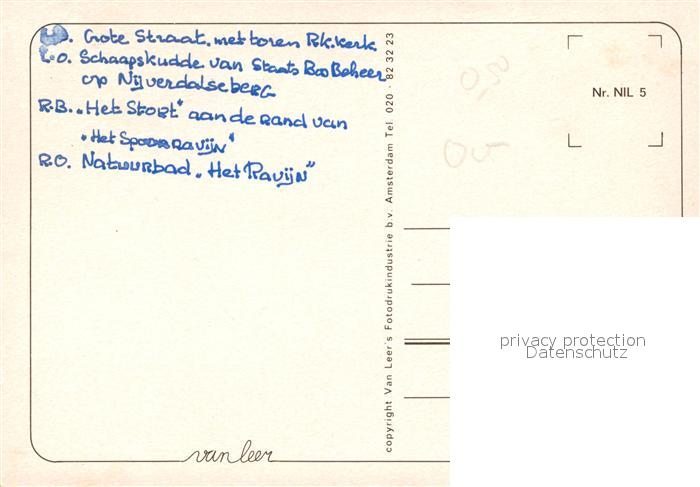 B. Grote Straat. met toren R.k. kerk
L.O. Schaapskudde van Staats BosBeheer
op Nijverdalseberg
R.B. „Het Stort" aan de rand van
"Het Spoorravijn"
R.O. Natuurbad „Het Ravijn"
copyright Van Leer's Fotodrukindustrie b.v. Amsterdam Tel. 020 - 82 32 23
0,50
Nr. NIL 5
privacy protection
Datenschutz
van leer